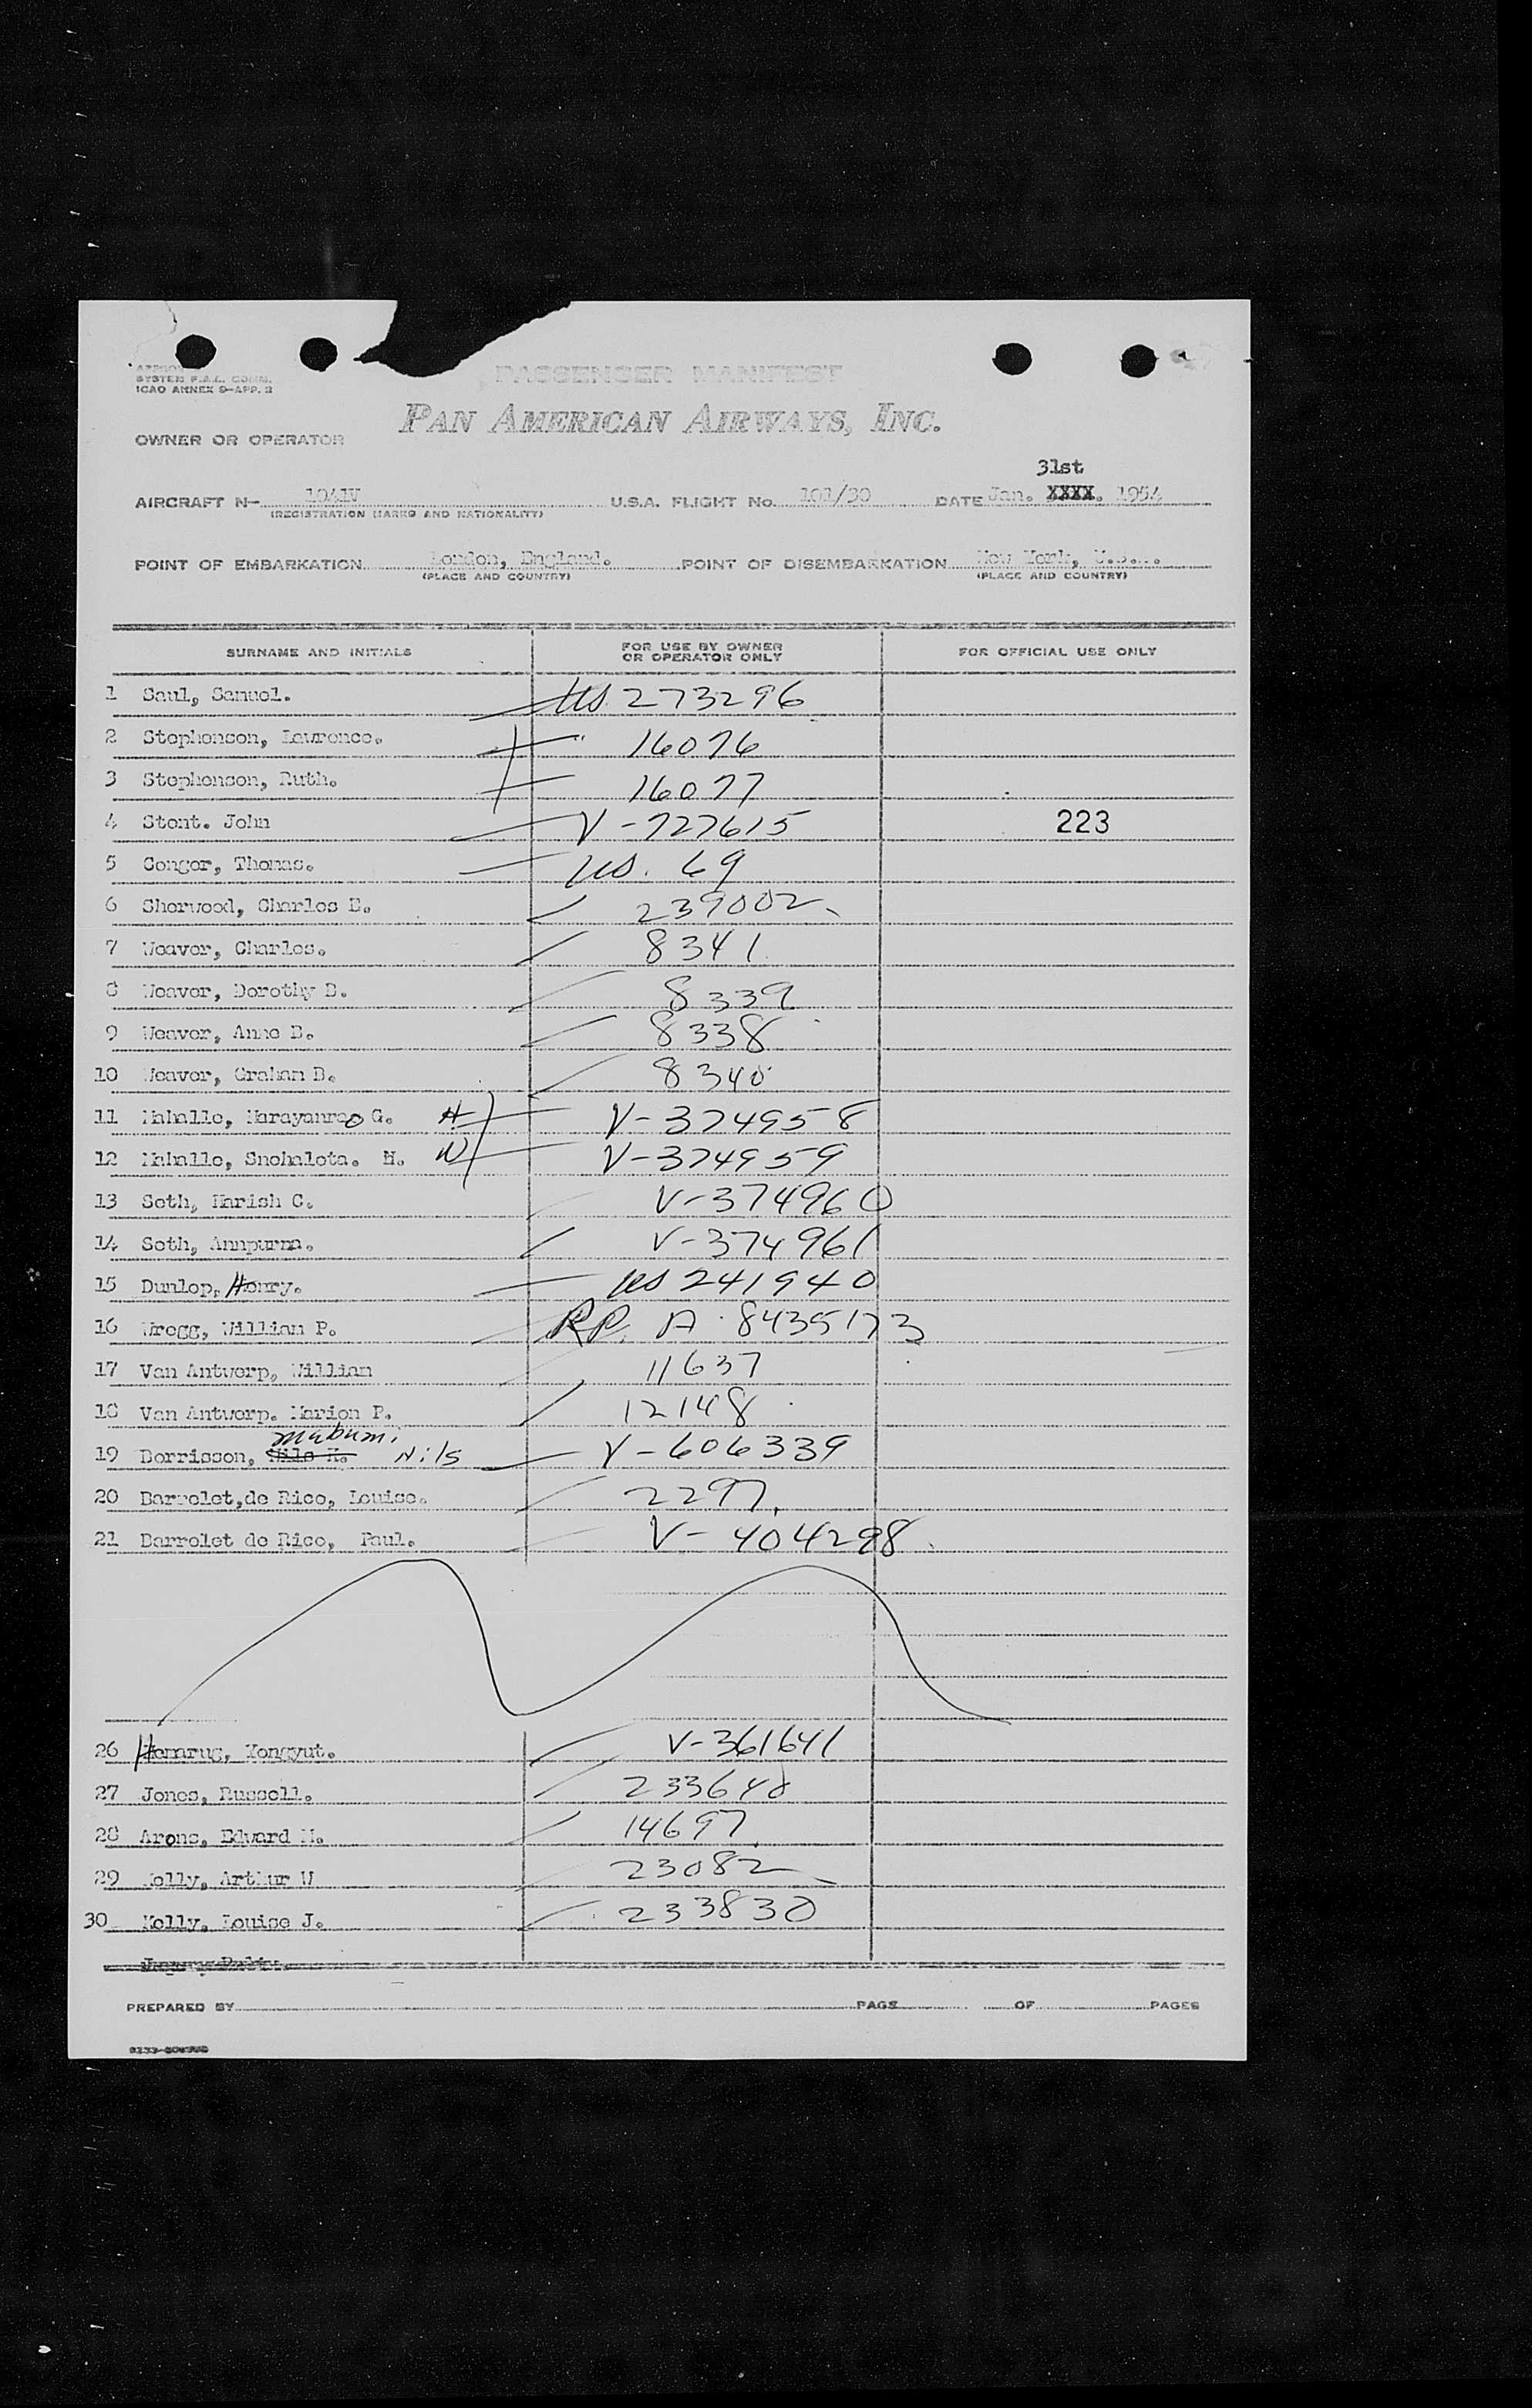 SYSTEM F.A.L. COMM.
ICAO ANNEX 9-APP. 2
PASSENGER MANIFEST
PAN AMERICAN AIRWAYS, INC.
OWNER OR OPERATOR
31st
AIRCRAFT N- 1041V U.S.A. FLIGHT No. 101/30 DATE Jan. XXXX. 1954
(REGISTRATION MARKS AND NATIONALITY)
POINT OF EMBARKATION London, England. POINT OF DISEMBARKATION New York, U.S.A.
(PLACE AND COUNTRY) (PLACE AND COUNTRY)
SURNAME AND INITIALS FOR USE BY OWNER OR OPERATOR ONLY FOR OFFICIAL USE ONLY
1 Saul, Samuel. US 273296
2 Stephenson, Lawrence. " 16076
3 Stephenson, Ruth. 16077
4 Stent. John V-727615 223
5 Conger, Thomas. US. 69
6 Sherwood, Charles E. 239002
7 Weaver, Charles. 8341
8 Weaver, Dorothy B. 8339
9 Weaver, Anne B. 8338
10 Weaver, Graham B. 8340
11 Mahalle, Narayanrao G. H V-374958
12 Mahalle, Snehalota. N. W V-374959
13 Seth, Harish C. V-374960
14 Seth, Annpurna. V-374961
15 Dunlop, Henry. US 241940
16 Wregg, William P. RP. A-8435173
17 Van Antwerp, William 11637
18 Van Antwerp. Marion P. 12148
19 Borrisson, Nils H. Nils V-606339
20 Barrelet,de Rico, Louise. 2297
21 Barrelet de Rico, Paul. V-404298
26 Hemrug, Yongyut. V-361641
27 Jones, Russell. 233640
28 Arons, Edward M. 14697
29 Kelly, Arthur W 23082
30 Kelly, Louise J. 233830
PREPARED BY PAGE OF PAGES